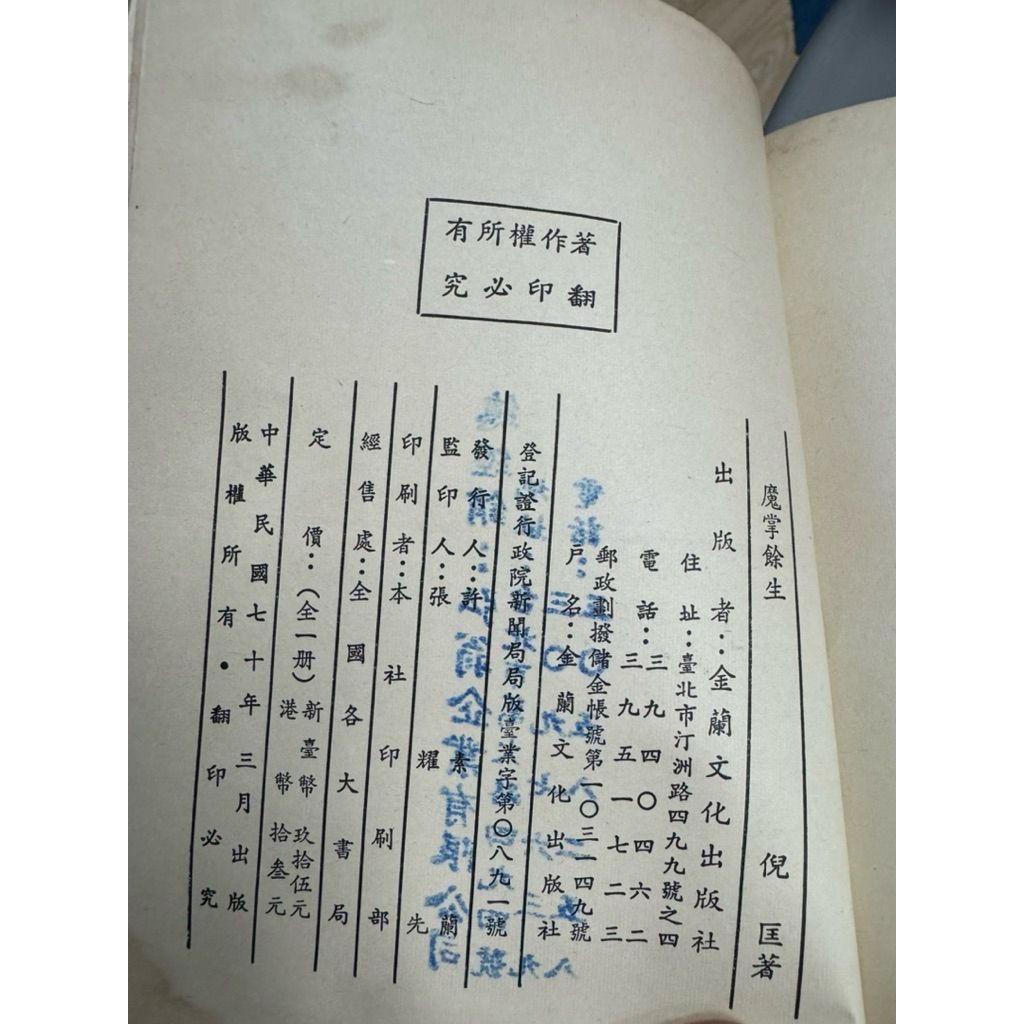 著作權所有
翻印必究
魔掌餘生 倪匡著
出版者：金蘭文化出版社
住址：臺北市汀洲路四九九號之四
電話：三九四〇四六二
三九五一七二三
郵政劃撥儲金帳號第一〇三一四九號
戶名：金蘭文化出版社
登記證行政院新聞局局版臺業字第〇八九一號
發行人：許素蘭
監印人：張耀先
印刷者：本社印刷部
經售處：全國各大書局
定價：（全一册）新臺幣玖拾伍元
港幣拾叁元
中華民國七十年三月出版
版權所有・翻印必究
企業有限公司